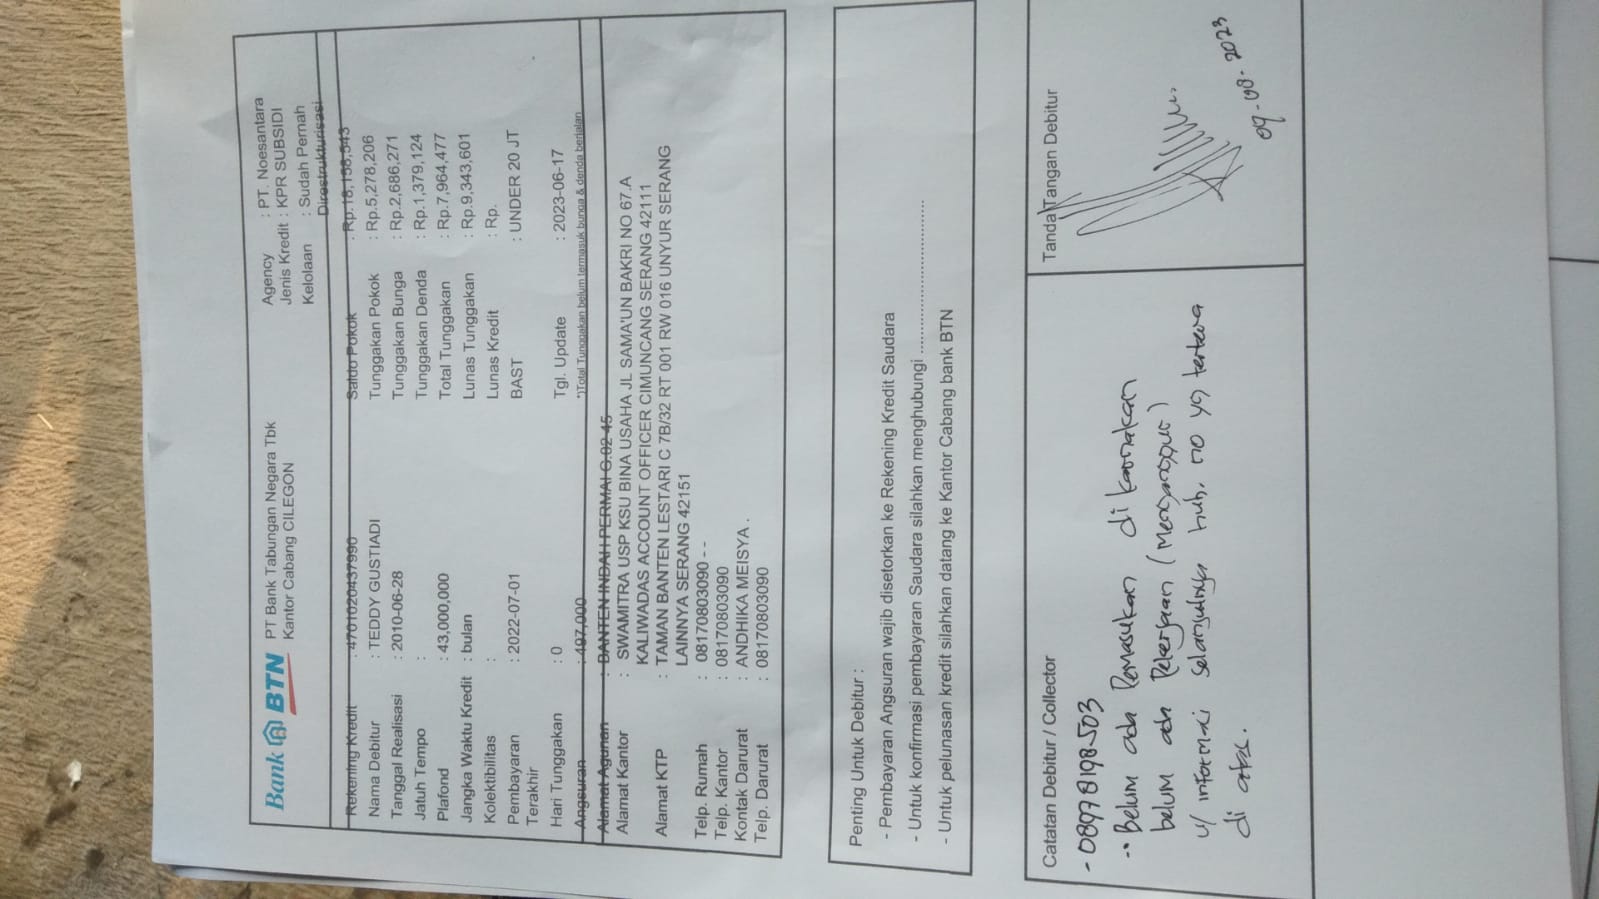 Bank BTN
PT Bank Tabungan Negara Tbk
Kantor Cabang CILEGON
Agency : PT. Noesantara
Jenis Kredit : KPR SUBSIDI
Kelolaan : Sudah Pernah
Direstrukturisasi
Rekening Kredit : 4701020437990
Nama Debitur : TEDDY GUSTIADI
Tanggal Realisasi : 2010-06-28
Jatuh Tempo :
Plafond : 43,000,000
Jangka Waktu Kredit : bulan
Kolektibilitas :
Pembayaran : 2022-07-01
Terakhir
Hari Tunggakan : 0
Angsuran : 497,000
Saldo Pokok : Rp.18,158,543
Tunggakan Pokok : Rp.5,278,206
Tunggakan Bunga : Rp.2,686,271
Tunggakan Denda : Rp.1,379,124
Total Tunggakan : Rp.7,964,477
Lunas Tunggakan : Rp.9,343,601
Lunas Kredit : Rp.
BAST : UNDER 20 JT
Tgl. Update : 2023-06-17
*)Total Tunggakan belum termasuk bunga & denda berjalan
Alamat Agunan : BANTEN INDAH PERMAI G.02 45
Alamat Kantor : SWAMITRA USP KSU BINA USAHA JL SAMA'UN BAKRI NO 67.A
KALIWADAS ACCOUNT OFFICER CIMUNCANG SERANG 42111
Alamat KTP : TAMAN BANTEN LESTARI C 7B/32 RT 001 RW 016 UNYUR SERANG
LAINNYA SERANG 42151
Telp. Rumah : 08170803090 - -
Telp. Kantor : 08170803090
Kontak Darurat : ANDHIKA MEISYA .
Telp. Darurat : 08170803090
Penting Untuk Debitur :
- Pembayaran Angsuran wajib disetorkan ke Rekening Kredit Saudara
- Untuk konfirmasi pembayaran Saudara silahkan menghubungi ........................
- Untuk pelunasan kredit silahkan datang ke Kantor Cabang bank BTN
Catatan Debitur / Collector
- 08978198503
- Belum ada Pemasukan di karnakan
belum ada Pekerjaan (Menganggur)
u/ informasi selanjutnya hub. no yg tertera
di atas.
Tanda Tangan Debitur
09-08-2023